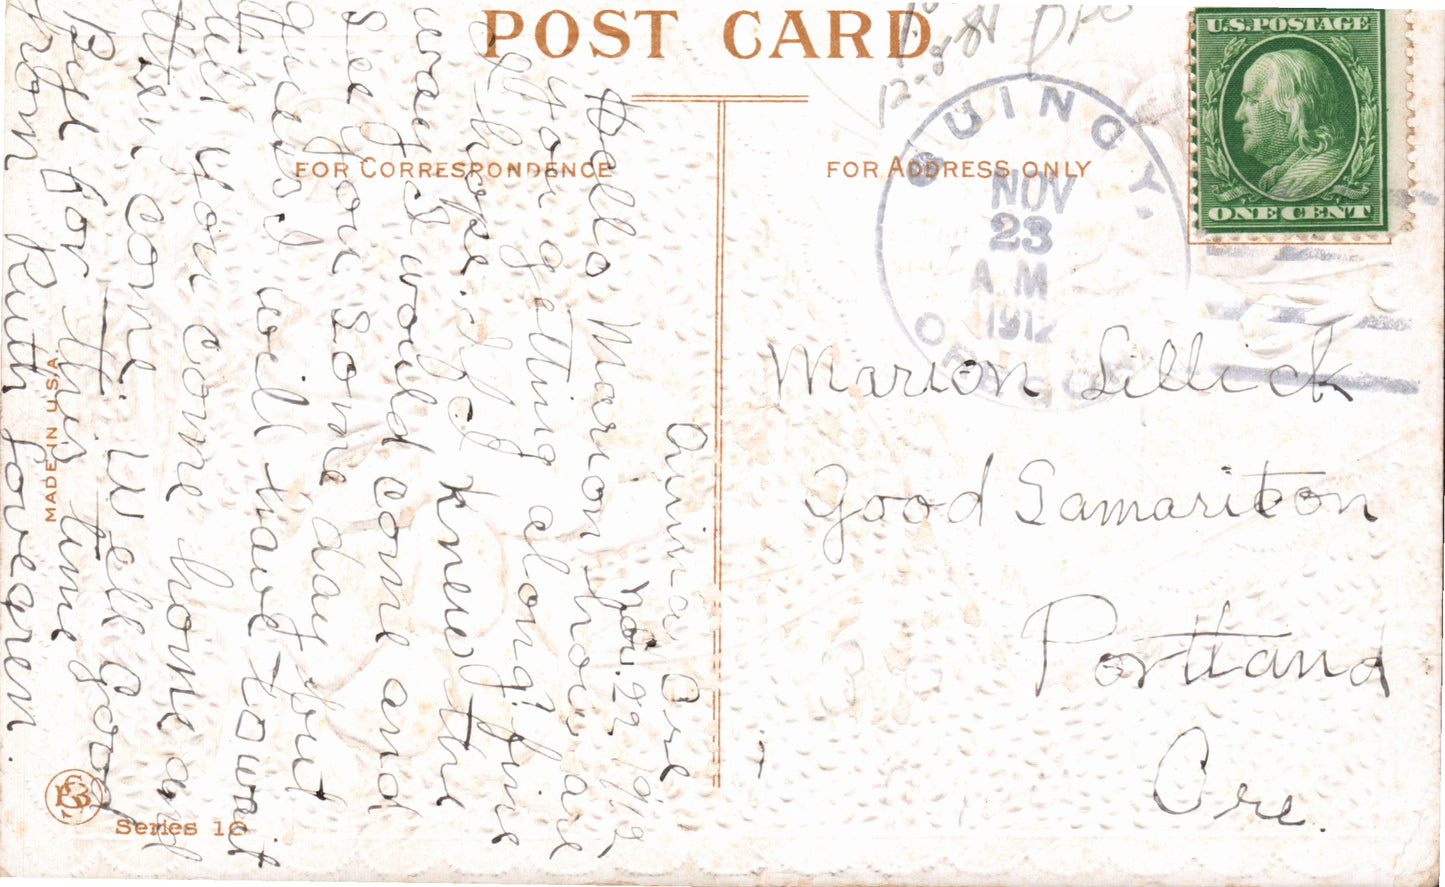 POST CARD
12-8-84
FOR CORRESPONDENCE
FOR ADDRESS ONLY
U.S. POSTAGE
ONE CENT
QUINCY.
NOV
23
A M
1912
OREGON
Quincy Ore
Nov. 22 1912,
Hello Marion how are
you getting along! fine
I hope. If I knew the
way I would come and
see you some day but
guess I will have to wait
till you come home and
then come. Well good
Bye for this time
from Ruth Lovegren.
Marion Lillick
Good Samariton
Portland
Ore.
MADE IN U.S.A.
Series 16